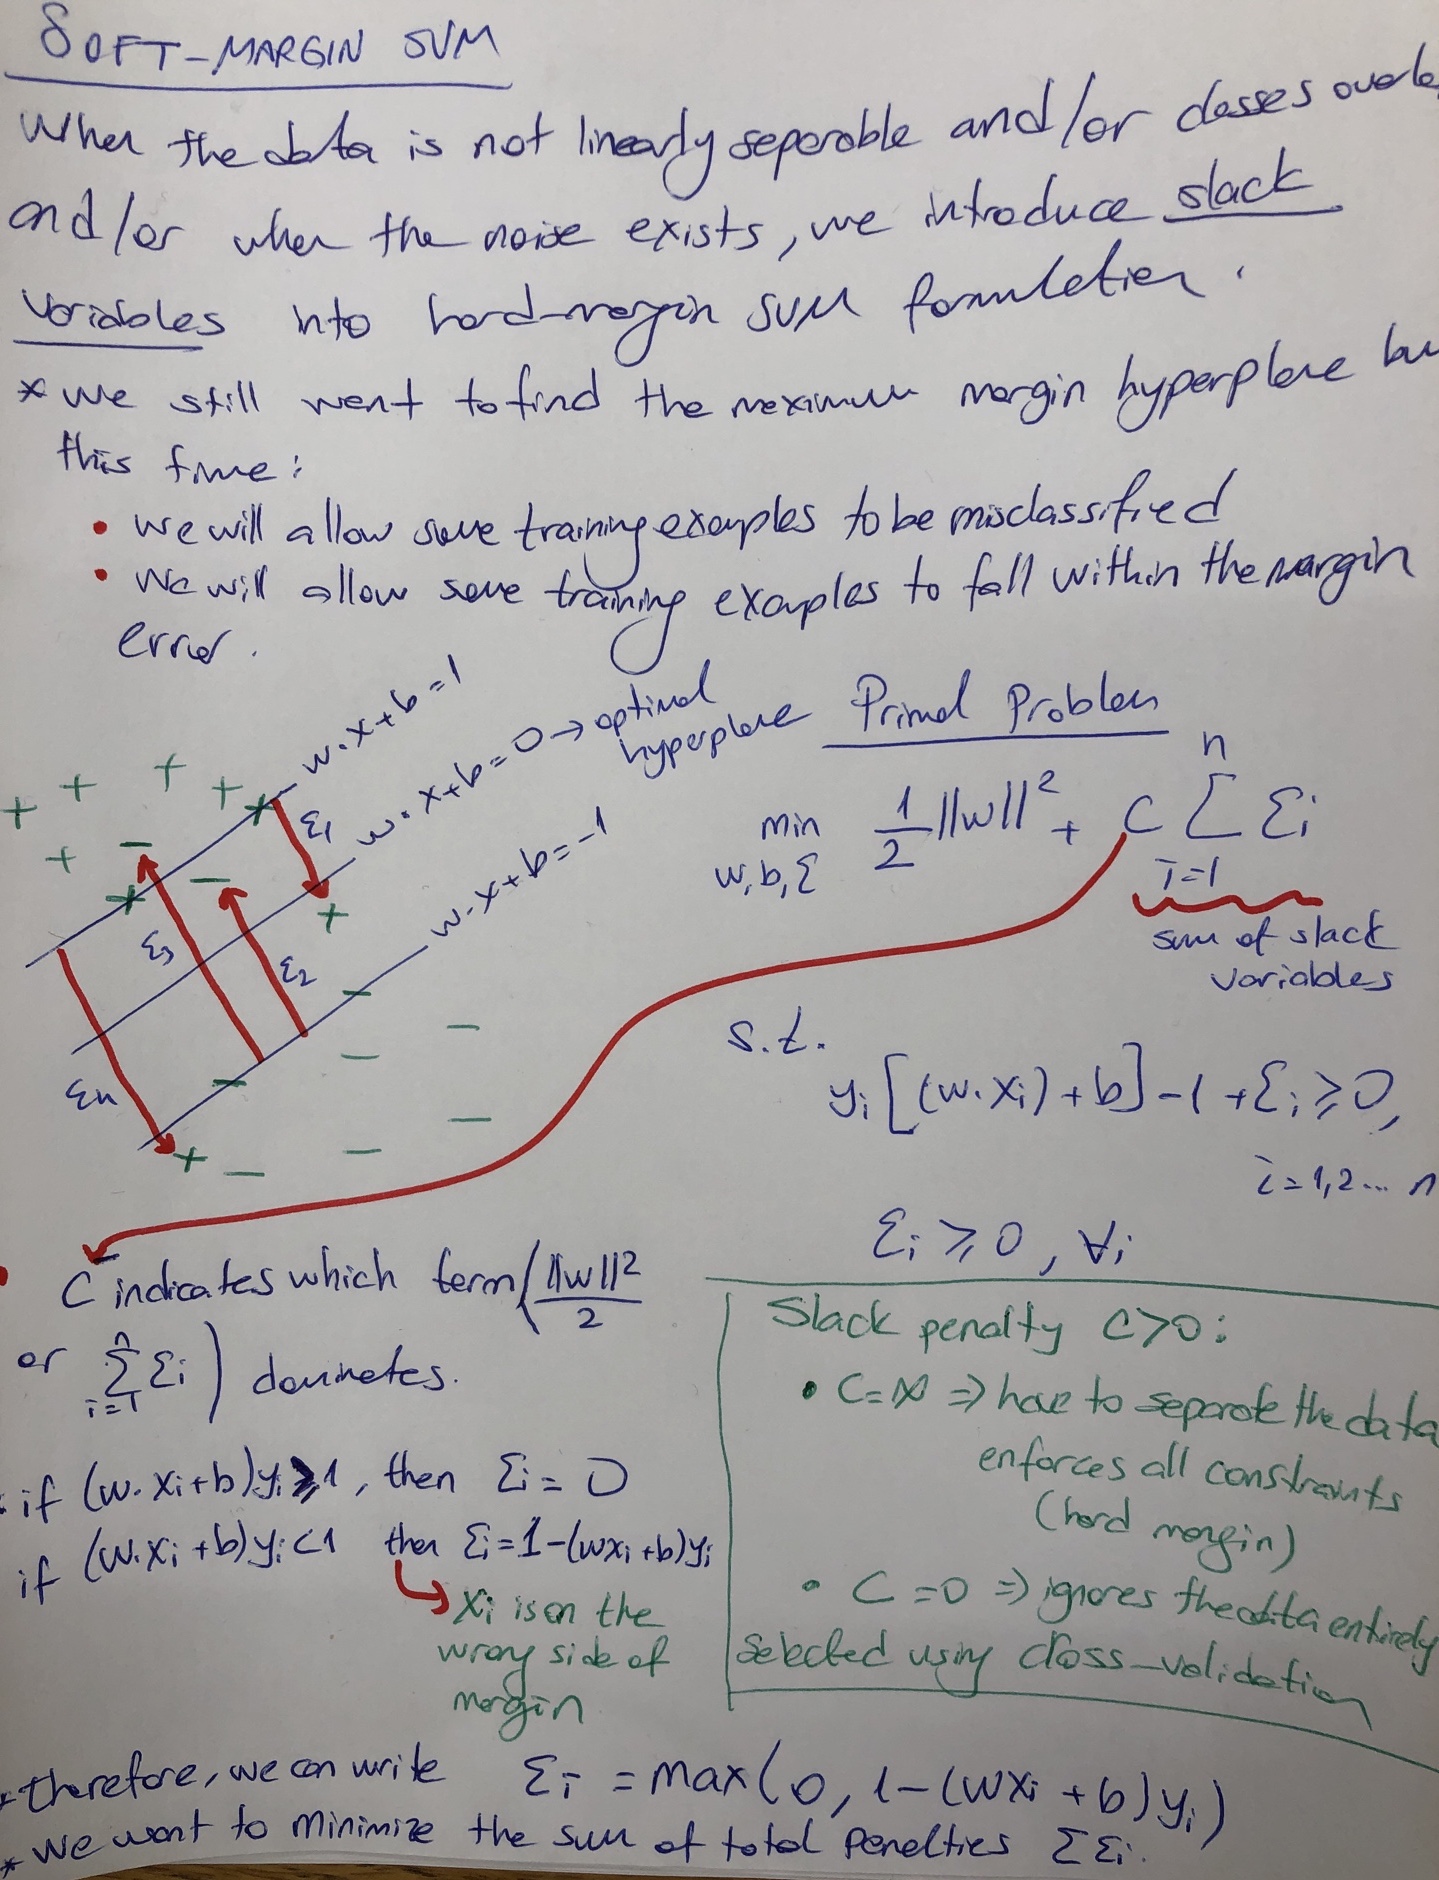 SOFT-MARGIN SVM
When the data is not linearly seperable and/or classes overla
and/or when the noise exists, we introduce slack
variables into hard-margin SVM formulation.
* we still want to find the maximum margin hyperplane bu
this time:
• we will allow some training examples to be misclassified
• we will allow some training examples to fall within the margin
error.
w·x+b=1
w·x+b=0 → optimal
hyperplane
w·x+b=-1
ξ1
ξ2
ξ3
ξn
Primal Problem
min 1/2 ||w||² + C Σ ξi
w,b,ξ
n
i=1
sum of slack
variables
s.t.
yi[(w·xi)+b]-1+ξi≥0,
i=1,2... n
ξi≥0, ∀i
• C indicates which term (||w||²/2
or Σ ξi) dominates.
n
i=1
: if (w·xi+b)yi≥1, then ξi=0
if (w·xi+b)yi<1 then ξi=1-(wxi+b)yi
xi is on the
wrong side of
margin
Slack penalty C>0:
• C=∞ => have to separate the data
enforces all constraints
(hard margin)
• C=0 => ignores the data entirely
selected using cross-validation
* therefore, we can write ξi = max(0, 1-(wxi+b)yi)
* we want to minimize the sum of total penalties Σξi.